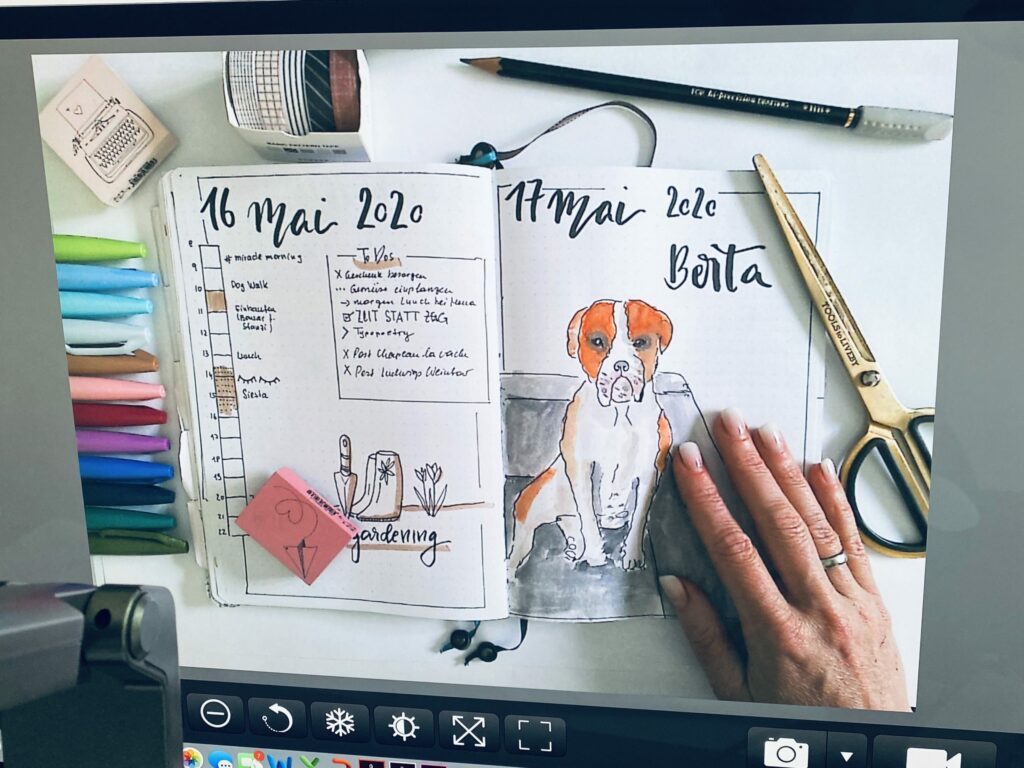 16 Mai 2020
8
9
10
11
12
13
14
15
16
17
18
19
20
21
22
# miracle morning
Dog Walk
Einkaufen
Lunch
Siesta
To Dos
x Geschenk besorgen
... Gemüse einpflanzen
→ morgen Lunch bei
ZEIT STATT ZEUG
> Typopoetry
x Post Chapeau la vache
x Post Ludwigs Weinbar
gardening
17 Mai 2020
Berta
BASIC PATTERN TAPE
TOOLS to LIVEBY